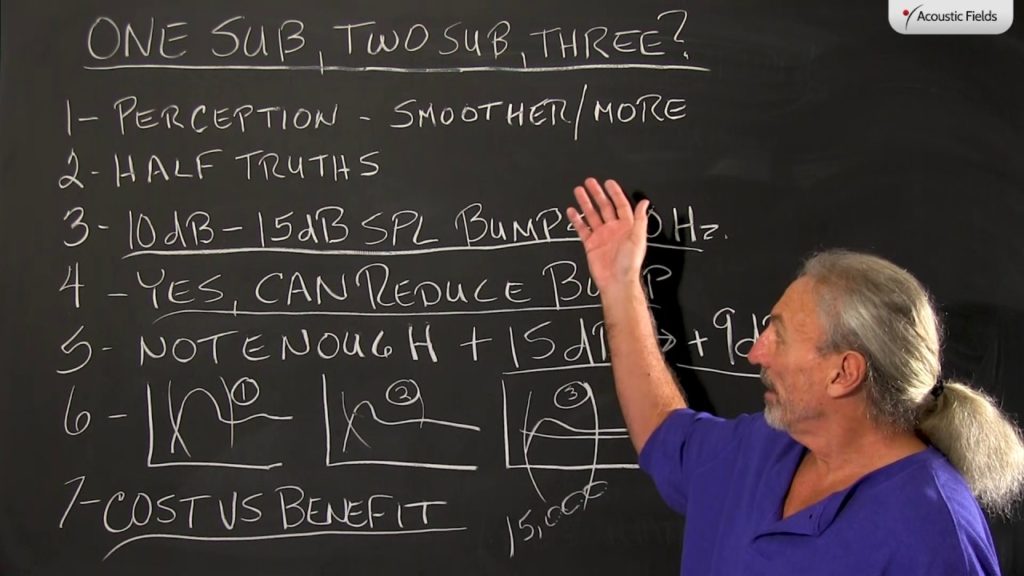 Acoustic Fields
ONE SUB, TWO SUB, THREE?
1- PERCEPTION - SMOOTHER/MORE
2- HALF TRUTHS
3- 10dB-15dB SPL BUMP 0 Hz.
4 - YES, CAN REDUCE BUMP
5- NOT ENOUGH + 15 dB → +9d
6 - 1 2 3
7- COST VS BENEFIT